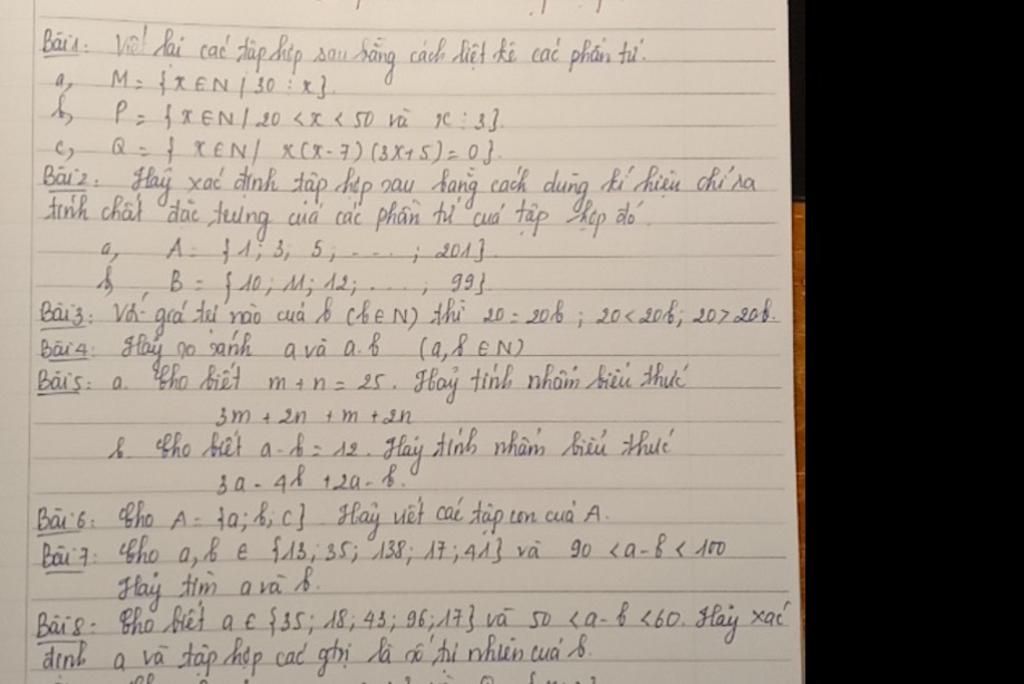 Bài 1: Viết lại các tập hợp sau bằng cách liệt kê các phần tử.
a, M = {x ∈ N / 30 ⋮ x}.
b, P = {x ∈ N / 20 < x < 50 và x ⋮ 3}.
c, Q = { x ∈ N / x(x-7)(3x+5) = 0}.
Bài 2: Hãy xác định tập hợp sau bằng cách dùng kí hiệu chỉ ra
tính chất đặc trưng của các phần tử của tập hợp đó.
a, A = {1; 3; 5; ....; 201}.
b, B = {10; 11; 12; ....; 99}
Bài 3: Với giá trị nào của b (b ∈ N) thì 20 = 20b ; 20 < 20b; 20 > 20b.
Bài 4: Hãy so sánh a và a.b (a, b ∈ N)
Bài 5: a. Cho biết m + n = 25. Hãy tính nhẩm biểu thức
3m + 2n + m + 2n
b. Cho biết a - b = 12. Hãy tính nhẩm biểu thức
3a - 4b + 2a - b.
Bài 6: Cho A = {a; b; c}. Hãy viết các tập con của A.
Bài 7: Cho a, b ∈ {13; 35; 138; 17; 41} và 90 < a - b < 100
Hãy tìm a và b.
Bài 8: Cho biết a ∈ {35; 18; 43; 96; 17} và 50 < a - b < 60. Hãy xác
định a và tập hợp các gtrị là số tự nhiên của b.